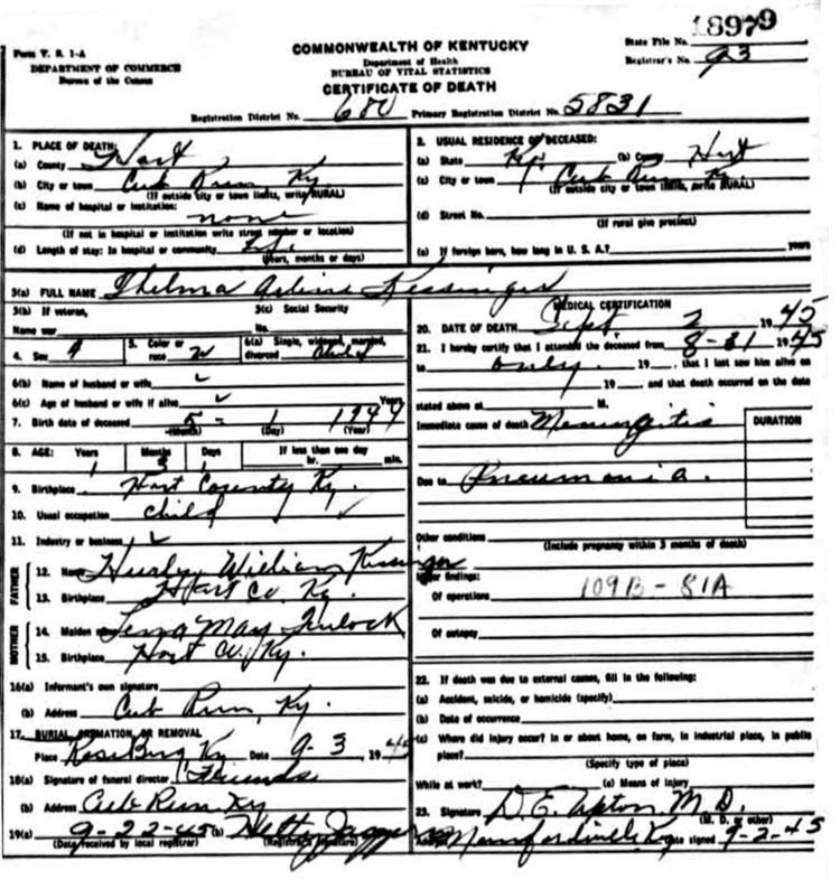 18979
Form V. S. 1-A
DEPARTMENT OF COMMERCE
Bureau of the Census
COMMONWEALTH OF KENTUCKY
Department of Health
BUREAU OF VITAL STATISTICS
CERTIFICATE OF DEATH
State File No.
Registrar's No. 93
Registration District No. 680 Primary Registration District No. 5831
1. PLACE OF DEATH:
(a) County Hart
(b) City or town Cub Run Ky.
(If outside city or town limits, write RURAL)
(c) Name of hospital or institution:
none
(If not in hospital or institution write street number or location)
(d) Length of stay: In hospital or community Life
(Years, months or days)
2. USUAL RESIDENCE OF DECEASED:
(a) State Ky. (b) County Hart
(c) City or town Cub Run Ky
(If outside city or town limits, write RURAL)
(d) Street No.
(If rural give precinct)
(e) If foreign born, how long in U. S. A.? years
3(a) FULL NAME Thelma Arline Kessinger
3(b) If veteran,
Name war
3(c) Social Security
No.
4. Sex 5. Color or race W 6(a) Single, widowed, married, divorced Child
6(b) Name of husband or wife
6(c) Age of husband or wife if alive Years
7. Birth date of deceased 5 - 1 1944
(Month) (Day) (Year)
8. AGE: Years Months Days If less than one day
1 1 hr. min.
9. Birthplace Hart County Ky.
10. Usual occupation Child
11. Industry or business
FATHER
12. Name William Kessinger
13. Birthplace Hart Co Ky.
MOTHER
14. Maiden name Lena May
15. Birthplace Hart Co. Ky.
16(a) Informant's own signature
(b) Address Cub Run, Ky.
17. BURIAL, CREMATION, OR REMOVAL
Place Ky Date 9-3 1945
18(a) Signature of funeral director Friends
(b) Address Cub Run Ky
19(a) 9-22-45 (b) Hetty Jaggers
(Date received by local registrar) (Registrar's signature)
MEDICAL CERTIFICATION
20. DATE OF DEATH Sept. 2 1945
21. I hereby certify that I attended the deceased from 8-31 1945
to only. 19 , that I last saw him alive on
19 , and that death occurred on the date
stated above at M.
Immediate cause of death Meningitis
DURATION
Due to Pneumonia.
Other conditions
(Include pregnancy within 3 months of death)
Major findings:
Of operations 109B - 81A
Of autopsy
22. If death was due to external causes, fill in the following:
(a) Accident, suicide, or homicide (specify)
(b) Date of occurrence
(c) Where did injury occur? In or about home, on farm, in industrial place, in public
place?
(Specify type of place)
While at work? (e) Means of injury
23. Signature D. E. Upton M. D.
(M. D. or other)
Address Munfordville Ky Date signed 9-2-45